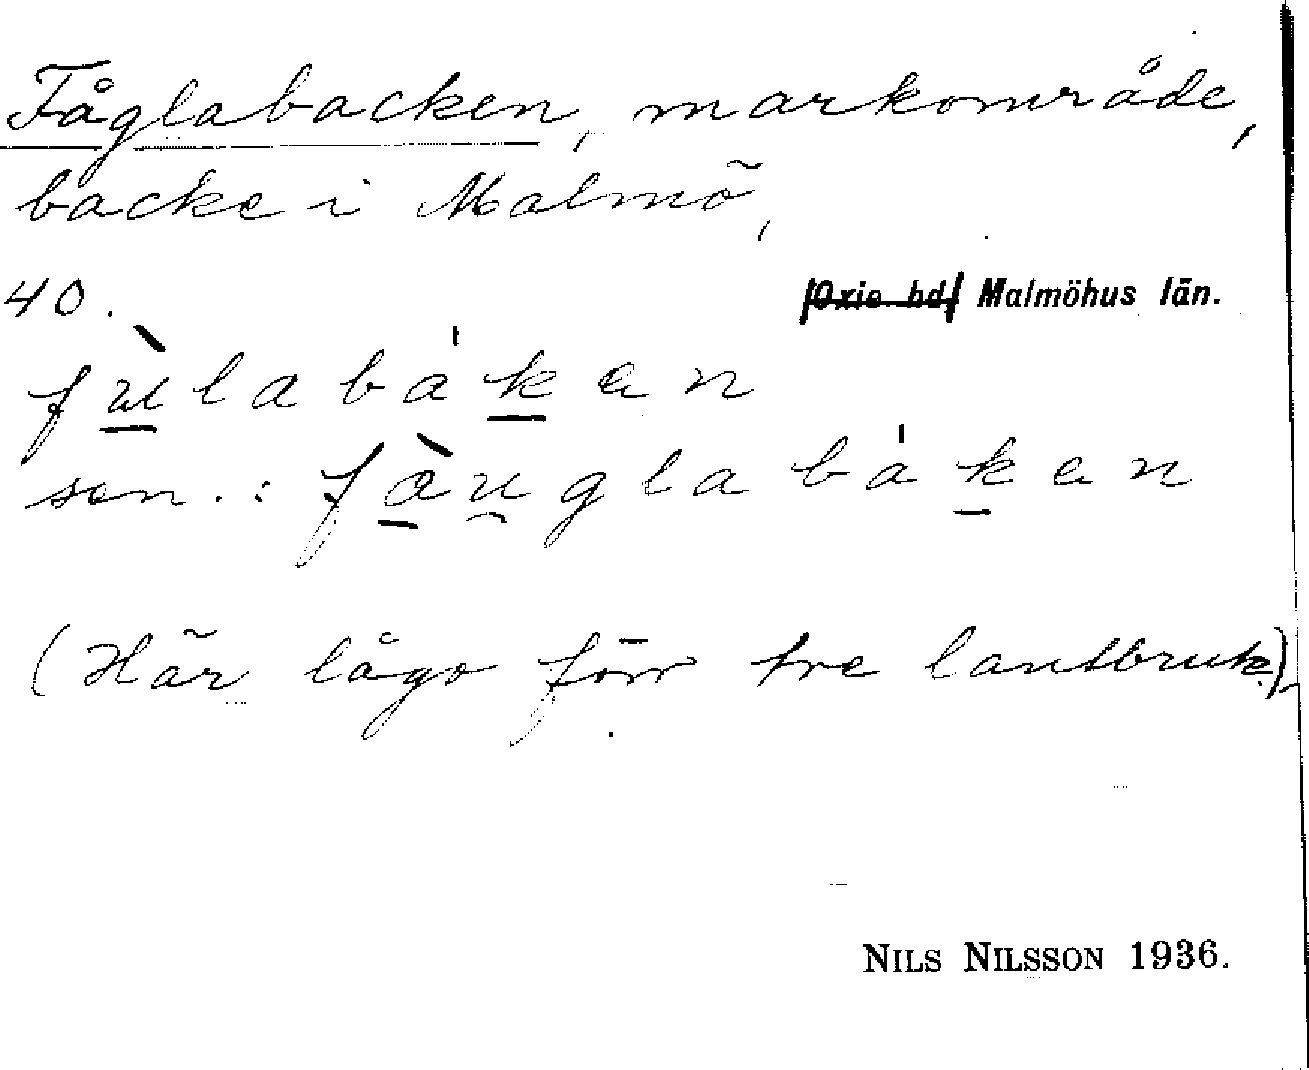 Fåglabacken, markområde,
backe i Malmö,
40. Oxie hd. Malmöhus län.
fù̱labák̲en
sen.: fà̱u̯glabák̲en
(Här lågo förr tre lantbruk).
NILS NILSSON 1936.